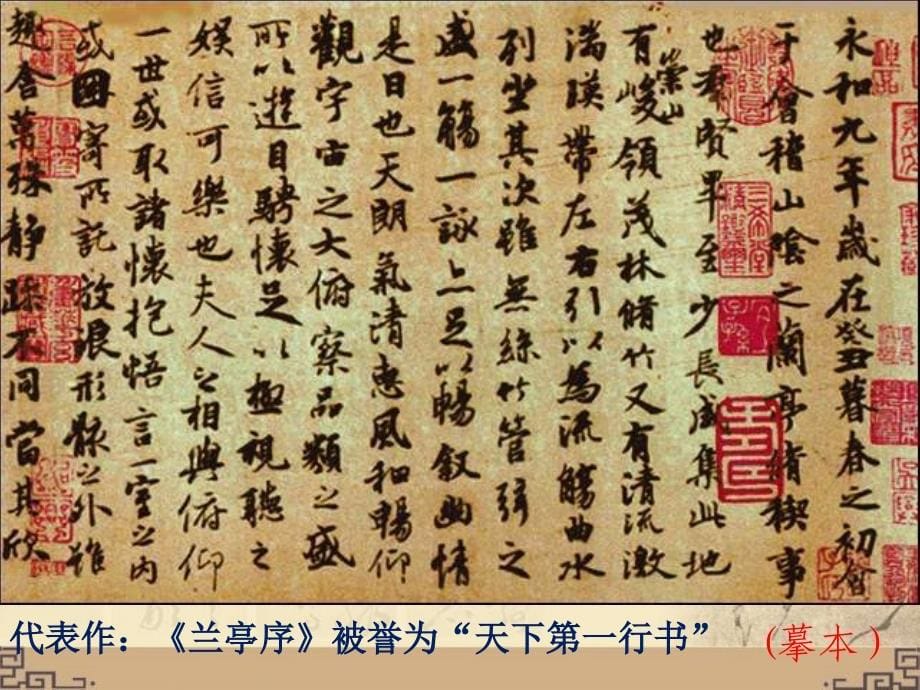 永和九年歲在癸丑暮春之初會
于會稽山陰之蘭亭脩稧事
也羣賢畢至少長咸集此地
有崇山峻領茂林脩竹又有清流激
湍暎帶左右引以為流觴曲水
列坐其次雖無絲竹管弦之
盛一觴一詠亦足以暢敘幽情
是日也天朗氣清惠風和暢仰
觀宇宙之大俯察品類之盛
所以遊目騁懷足以極視聽之
娛信可樂也夫人之相與俯仰
一世或取諸懷抱悟言一室之內
或因寄所託放浪形骸之外雖
趣舍萬殊靜躁不同當其欣
代表作：《兰亭序》被誉为“天下第一行书” (摹本)